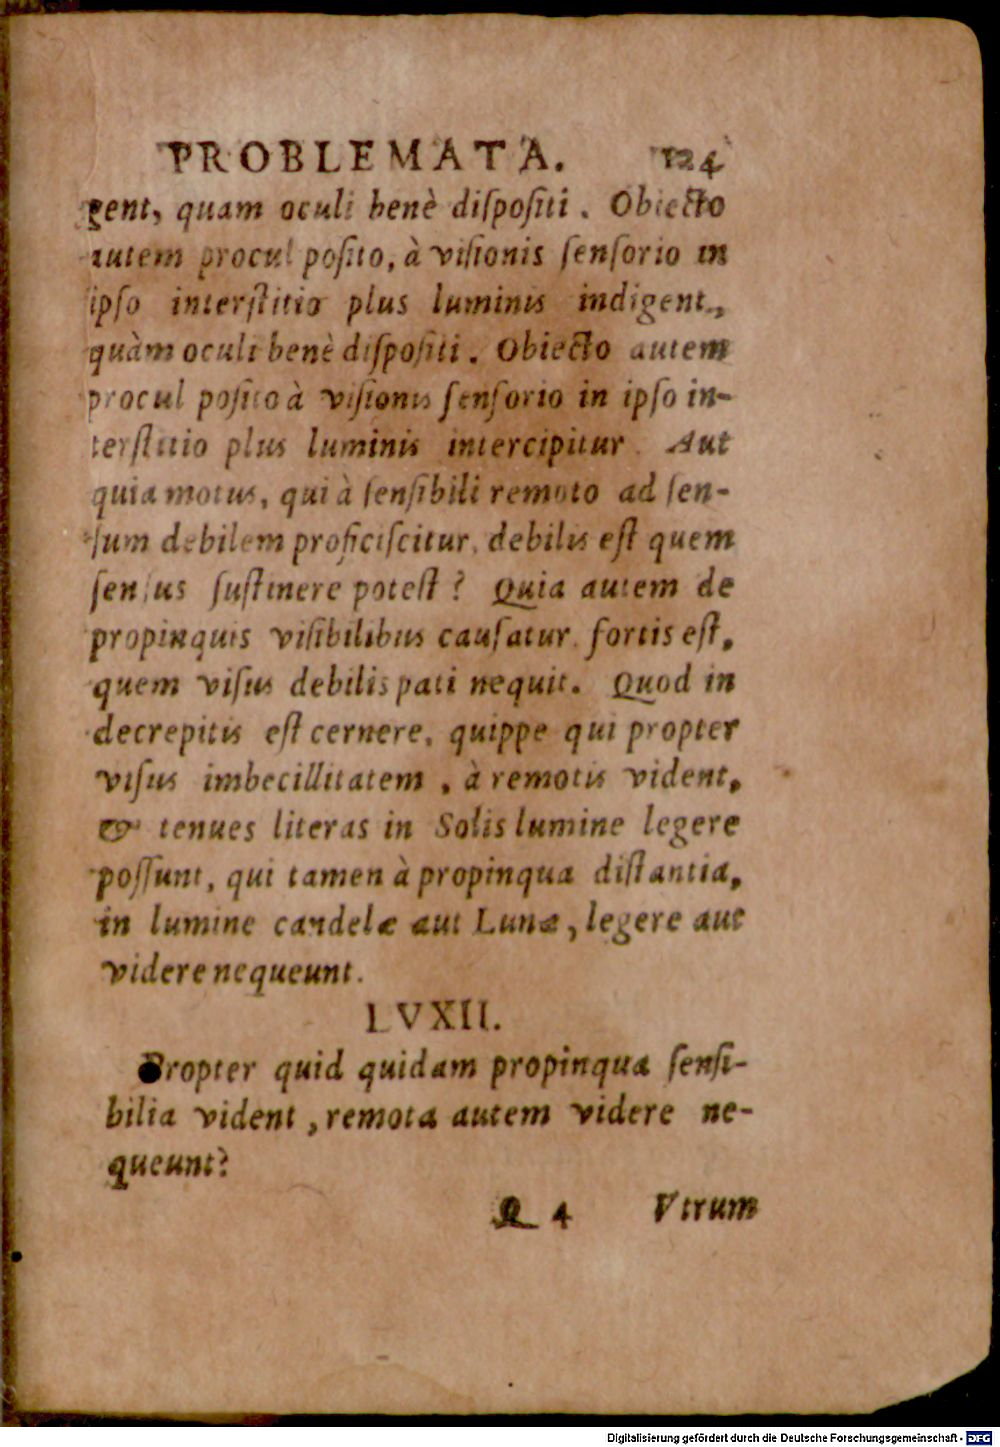 PROBLEMATA. 124
gent, quam oculi benè diſpoſiti. Obiecto
autem procul poſito, à viſionis ſenſorio in
ipſo interſtitio plus luminis indigent,
quàm oculi benè diſpoſiti. Obiecto autem
procul poſito à viſionis ſenſorio in ipſo in-
terſtitio plus luminis intercipitur. Aut
quia motus, qui à ſenſibili remoto ad ſen-
ſum debilem proficiſcitur, debilis eſt quem
ſenſus ſuſtinere poteſt? Quia autem de
propinquis viſibilibus cauſatur, fortis eſt,
quem viſus debilis pati nequit. Quod in
decrepitis eſt cernere, quippe qui propter
viſus imbecillitatem, à remotis vident,
& tenues literas in Solis lumine legere
poſſunt, qui tamen à propinqua diſtantia,
in lumine candelæ aut Lunæ, legere aut
videre nequeunt.
LVXII.
Propter quid quidam propinqua ſenſi-
bilia vident, remota autem videre ne-
queunt?
Q 4 Vtrum
Digitalisierung gefördert durch die Deutsche Forschungsgemeinschaft - DFG